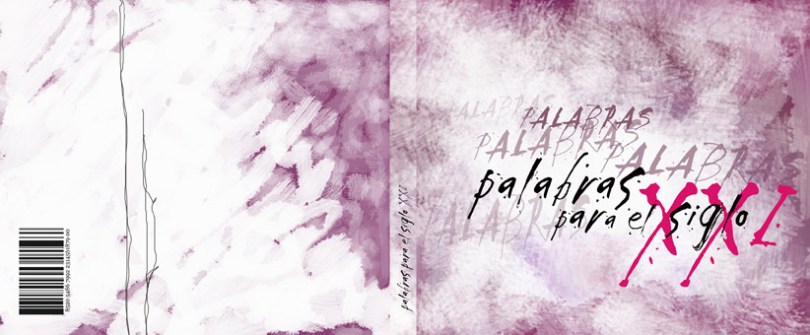 palabras para el siglo XXI
PALABRAS
PALABRAS
PALABRAS
PALABRAS
palabras
para el siglo
XXI